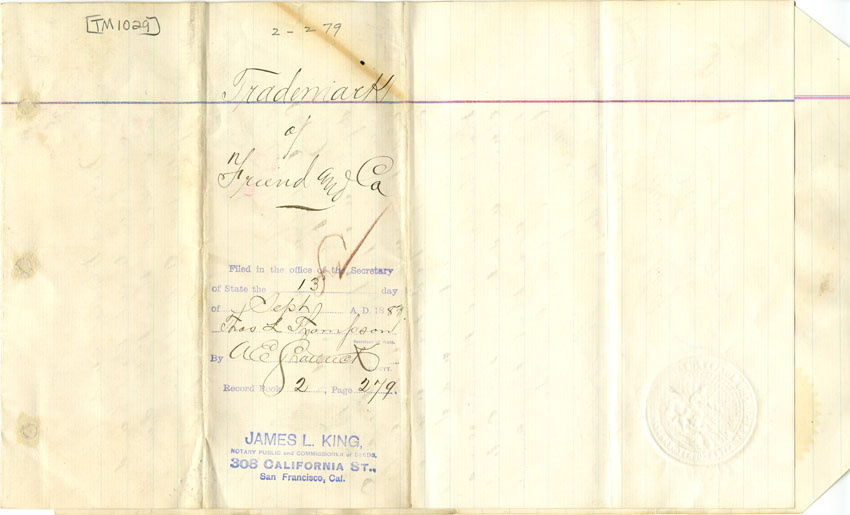 [TM1029]
2-279
Trademark
of
Friend and Co
Filed in the office of the Secretary
of State the 13 day
of Sept A.D. 188
Thos L Thompson
Secretary of State.
By A E
Record Book 2, Page 279.
JAMES L. KING,
NOTARY PUBLIC and COMMISSIONER of DEEDS,
308 CALIFORNIA ST.,
San Francisco, Cal.